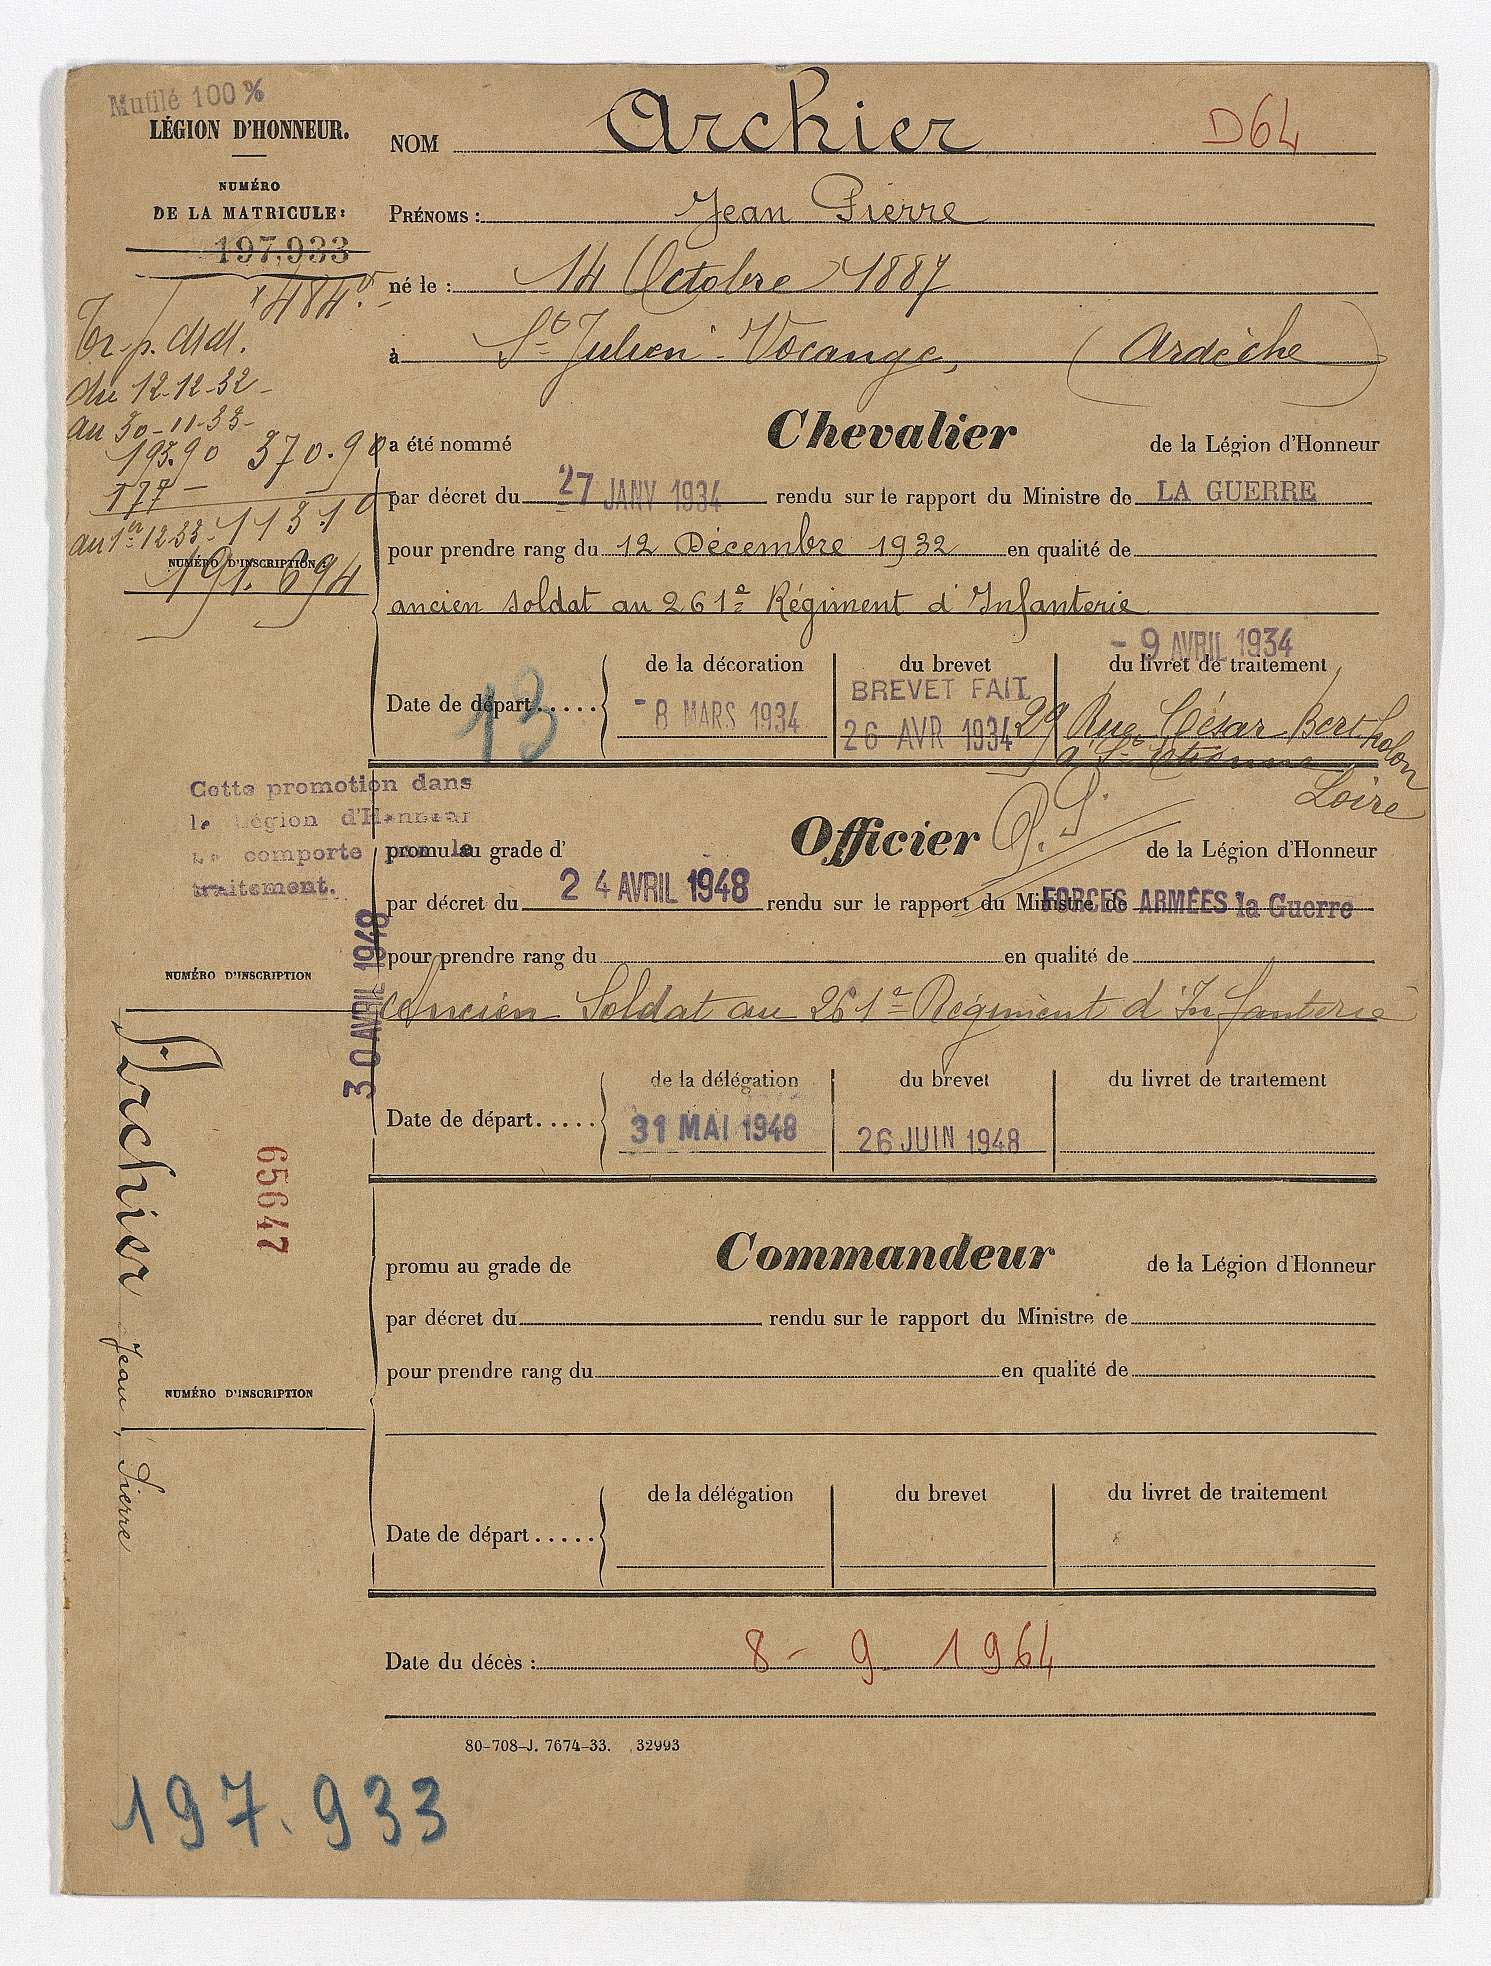 Mutilé 100%
LÉGION D'HONNEUR.
NUMÉRO
DE LA MATRICULE:
197.933
484
Tr. p. 
du 12-12-32
au 30-11-33
193.90 370.90
177 -
au 1er 12 33 113.10
NUMÉRO D'INSCRIPTION
191.694
NOM Archier D64
PRÉNOMS : Jean Pierre
né le : 14 Octobre 1887
à St Julien - Vocange, (Ardèche)
a été nommé Chevalier de la Légion d'Honneur
par décret du 27 JANV 1934 rendu sur le rapport du Ministre de LA GUERRE
pour prendre rang du 12 Décembre 1932 en qualité de
ancien soldat au 261e Régiment d'Infanterie
- 9 AVRIL 1934
de la décoration du brevet du livret de traitement
Date de départ..... - 8 MARS 1934 BREVET FAIT
26 AVR 1934
13
29 Rue César Bertholon
à St Etienne
Loire
Cette promotion dans
la Légion d'Honneur
ne comporte pas le
traitement.
promu au grade d' Officier de la Légion d'Honneur
par décret du 24 AVRIL 1948 rendu sur le rapport du Ministre de FORCES ARMÉES la Guerre
pour prendre rang du en qualité de
30 AVRIL 1948
NUMÉRO D'INSCRIPTION
Ancien Soldat au 261e Régiment d'Infanterie
de la délégation du brevet du livret de traitement
Date de départ..... 31 MAI 1948 26 JUIN 1948
Archier Jean, Pierre
65647
promu au grade de Commandeur de la Légion d'Honneur
par décret du rendu sur le rapport du Ministre de
pour prendre rang du en qualité de
NUMÉRO D'INSCRIPTION
de la délégation du brevet du livret de traitement
Date de départ.....
Date du décès : 8 - 9 1964
80-708-J. 7674-33. 32993
197.933